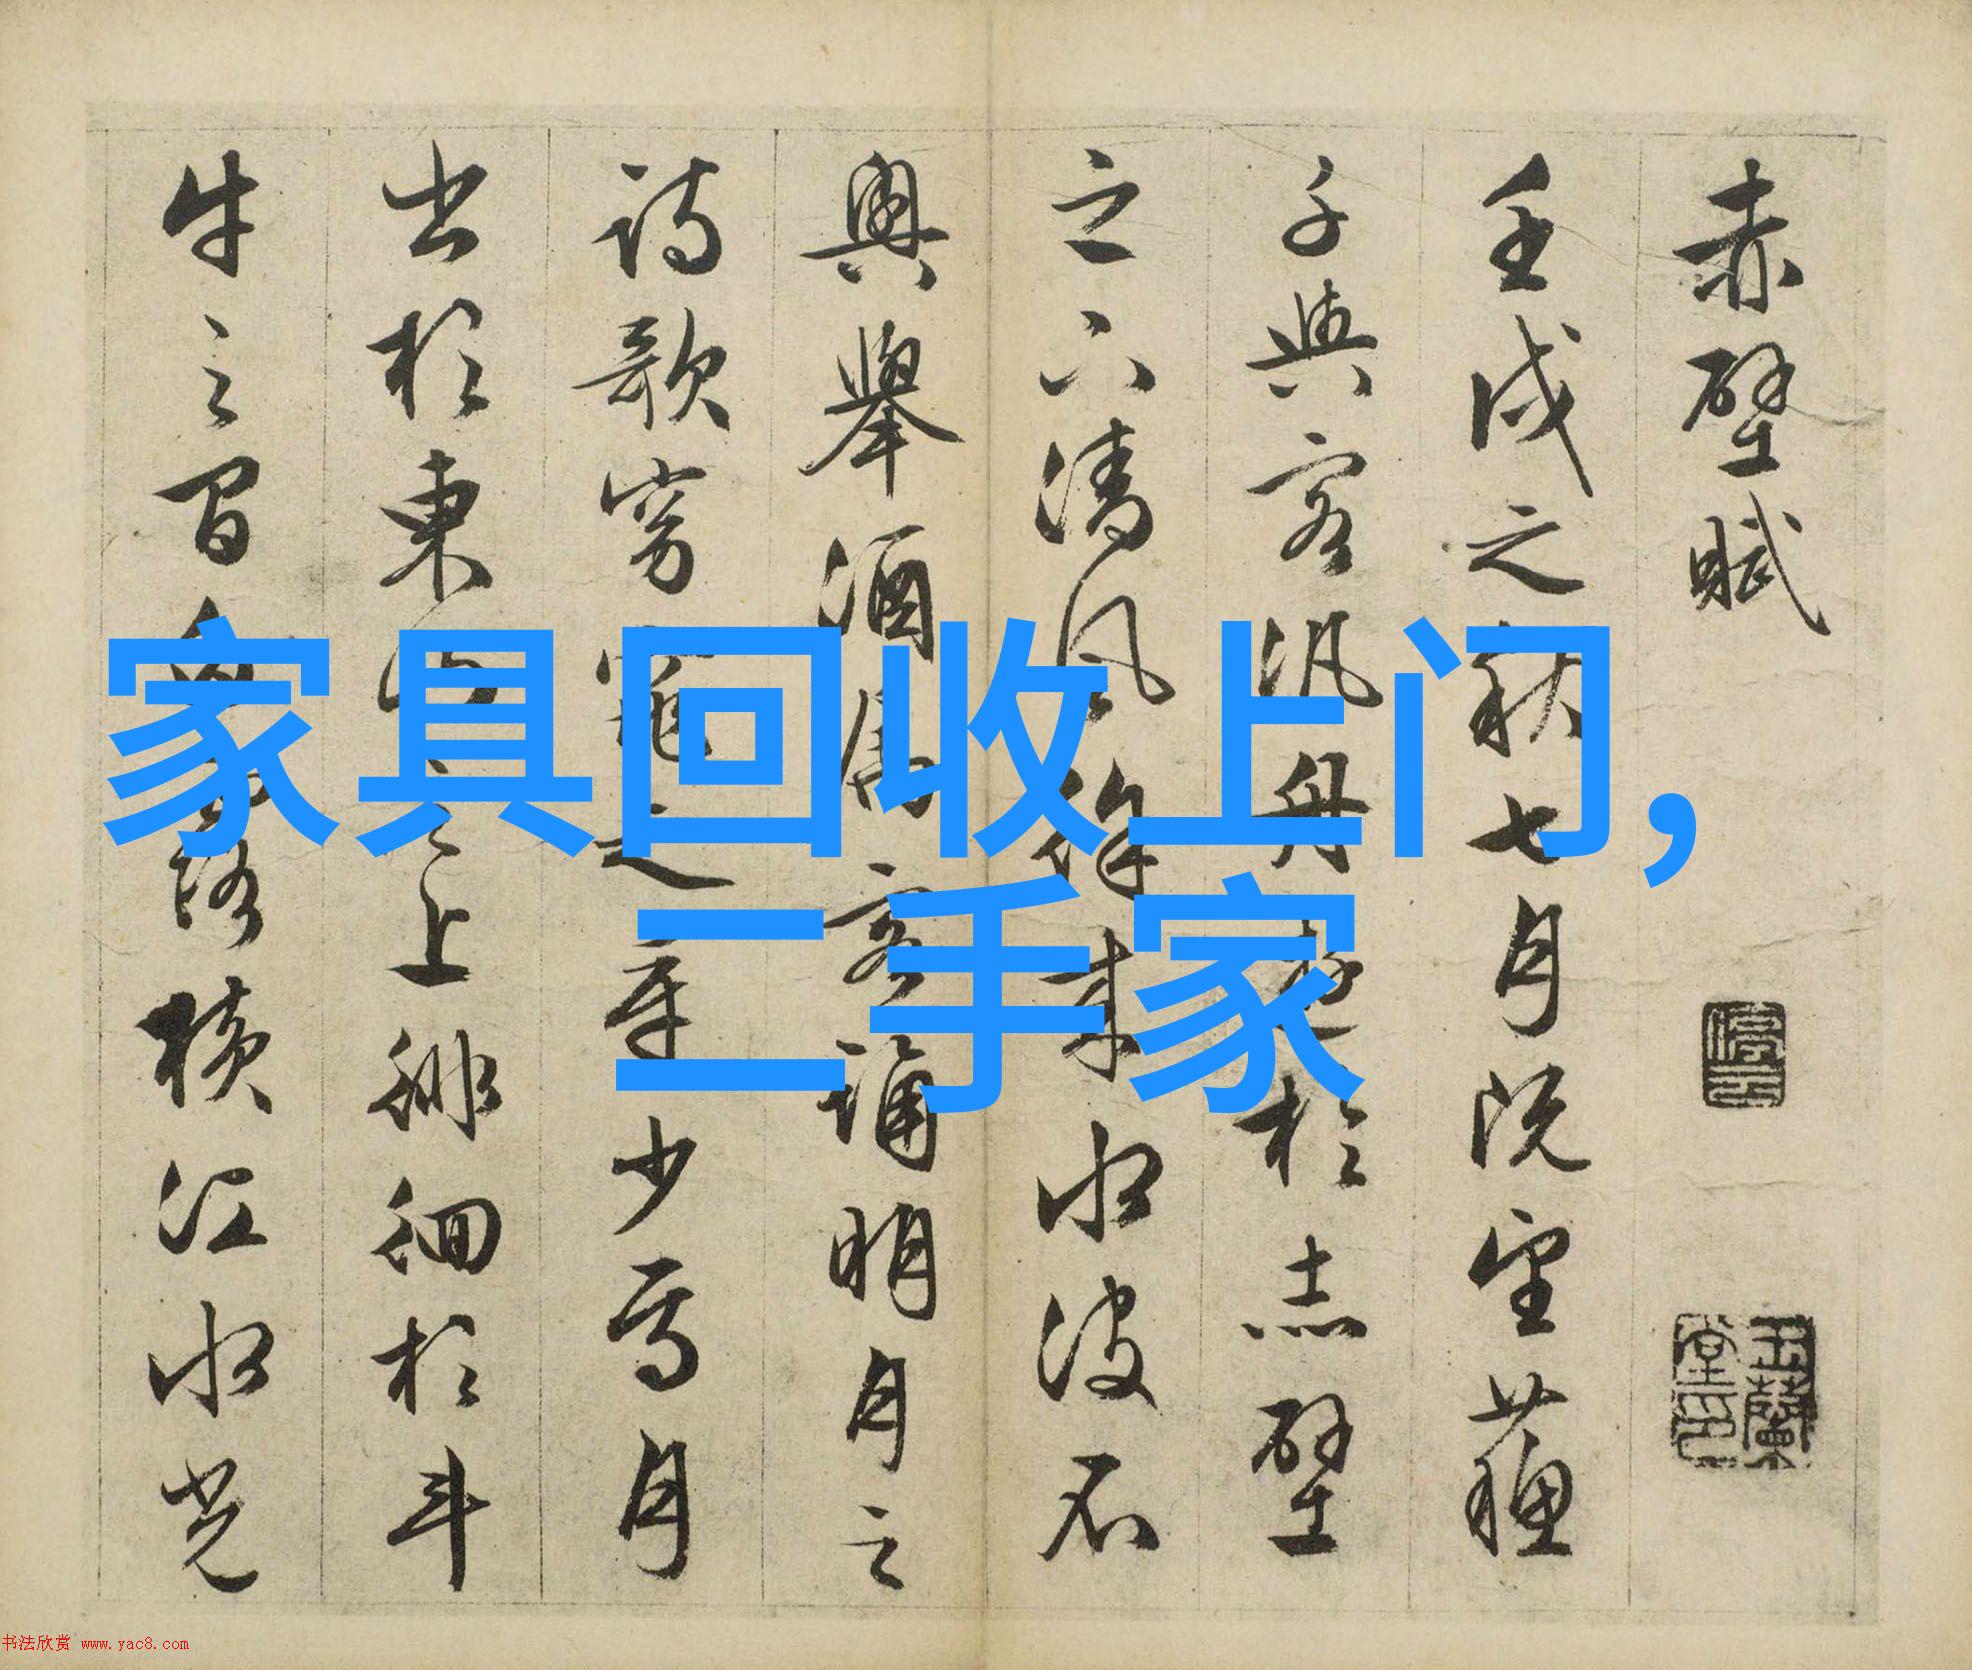 赤壁賦
壬戌之秋七月既望蘓
子與客汎舟遊於赤壁
之下清風徐来水波不
興舉酒屬客誦明月之
詩歌窈窕之章少焉月
出於東山之上徘徊於斗
牛之間白露横江水光
停雲
玉蘭堂印
家具回收上门,
二手家
书法欣赏 www.yac8.com